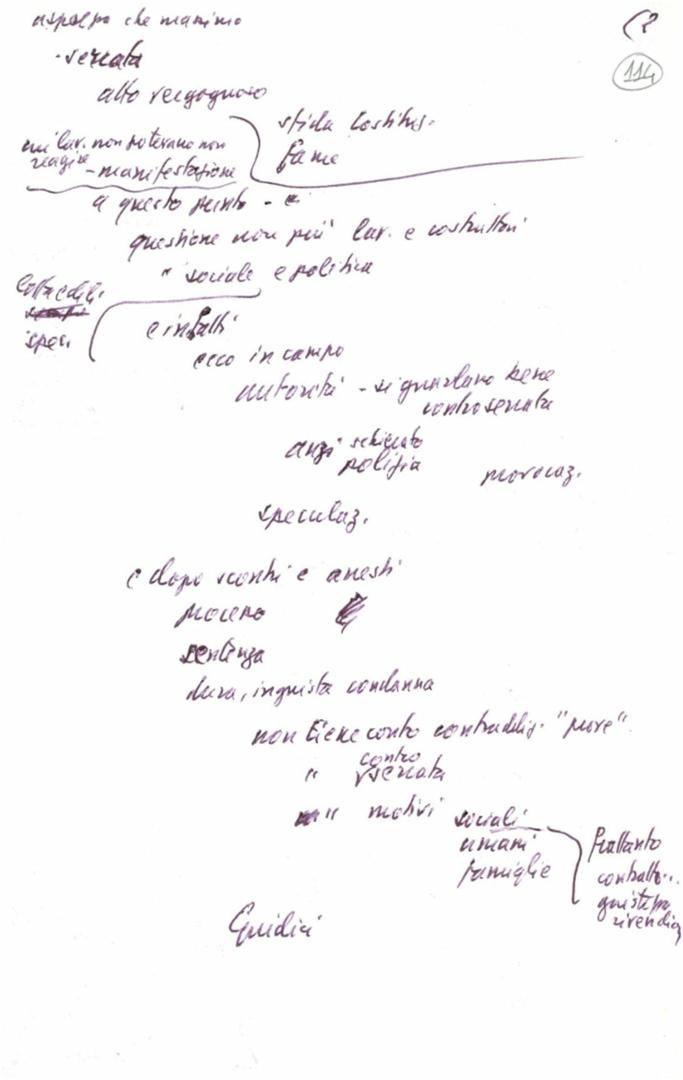 che
114
- serrata
atto vergognoso
sfida Costituz.
fame
cui lav. non potevano non
reagire - manifestazione
a questo punto - è
questione non più lav. e costruttori
" sociale e politica
lotta edili
spec.
e infatti
ecco in campo
autorità - si guardano bene
contro serrata
anzi schierato
polizia
provocaz.
speculaz.
e dopo scontri e arresti
processo
sentenza
dura, ingiusta condanna
non tiene conto contraddiz. "prove"
" contro
serrata
" motivi sociali
umani
famiglie
frattanto
contratto..
giustezza
rivendicaz
Giudici